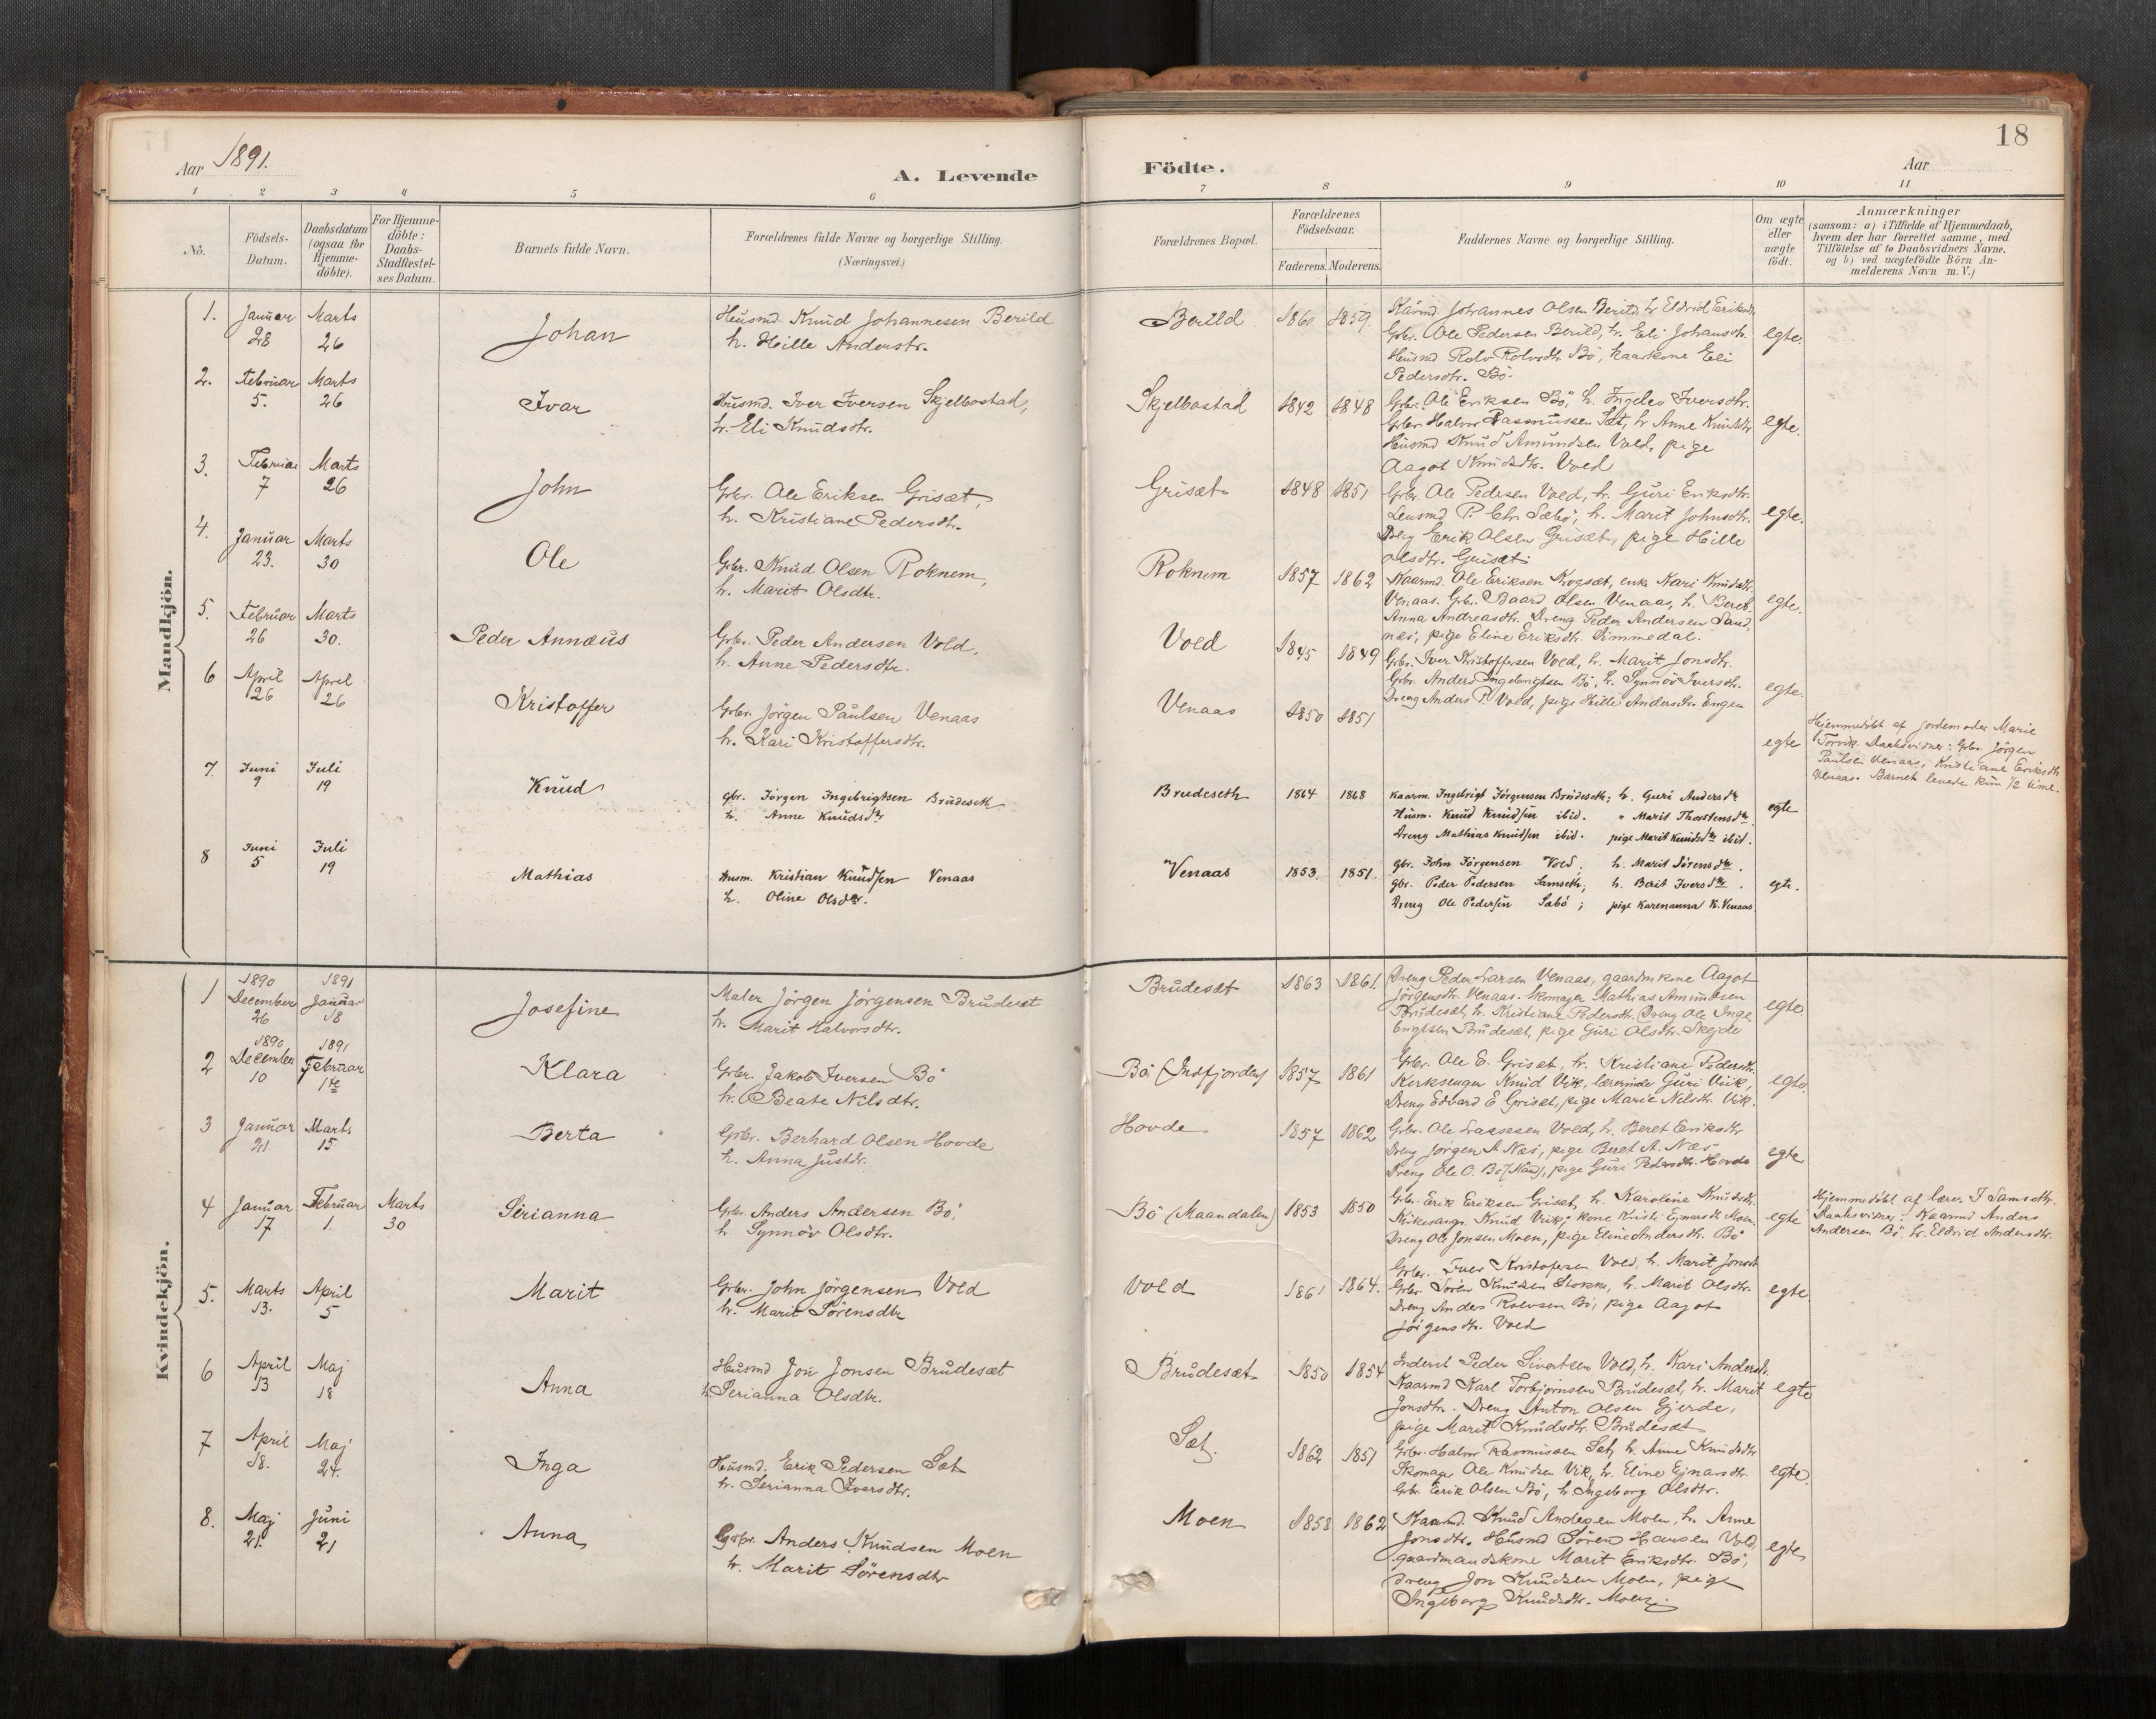 18
Aar 1891.
A. Levende Födte.
Aar
1 2 3 4 5 6 7 8 9 10 11
No.
Födsels-
Datum.
Daabsdatum
(ogsaa for
Hjemme-
döbte).
For Hjemme-
döbte:
Daabs-
Stadfestel-
ses Datum.
Barnets fulde Navn.
Forældrenes fulde Navne og borgerlige Stilling.
(Næringsvei.)
Forældrenes Bopæl.
Forældrenes
Födselsaar.
Faderens. Moderens.
Faddernes Navne og borgerlige Stilling.
Om ægte
eller
uægte
födt.
Anmærkninger
(saasom: a) i Tilfælde af Hjemmedaab,
hvem der har forrettet samme, med
Tilföielse af to Daabsvidners Navne.
og b) ved uægtefödte Börn An-
melderens Navn m. V.)
Mandkjön.
1. Januar 28 Marts 26 Johan
Husmd. Knud Johannesen Berild
h. Hille Anderstr.
Berild 1860 1859.
Kårmd. Johannes Olsen Berild, h. Eldrid Eriksdr.
Grbr. Ole Pedersen Berild, h. Eli Johansdtr.
Husmd Rolv Bö, kaarkone Eli
Pedersdtr. Bö.
egte.
2. Februar 5. Marts 26 Ivar
Husmd. Iver Iversen Skjelbostad,
h. Eli Knudsdtr.
Skjelbostad 1842 1848
Grbr. Ole Eriksen Bö, h. Ingeleo Iversdtr.
Grbr. Halvor Rasmussen Sæt, h. Anne Knudsdtr
Husmd Knud Amundsen Vold, pige
Aagot Knudsdtr. Vold
egte.
3. Februar 7 Marts 26 John
Grbr. Ole Eriksen Grisæt,
h. Kristiane Pedersdtr.
Grisæt 1848 1851
Grbr. Ole Pedersen Vold, h. Guri Eriksdtr.
Lensmd P. Chr. Sæbö, h. Marit Johnsdtr.
Dreng Erik Olsen Grisæt, pige Hille
Olsdtr. Grisæt
egte.
4. Januar 23. Marts 30 Ole
Grbr. Knud Olsen Roknem,
h. Marit Olsdtr.
Roknem 1857 1862
Kaarmd. Ole Eriksen, enke Kari Knudsdtr.
Venaas. Grbr. Baard Olsen Venaas, h. Beret
Anna Andreasdtr. Dreng Peder Andersen Sand-
næs, pige Eline Eriksdtr. Dimmedal.
egte.
5. Februar 26 Marts 30. Peder Annæus
Grbr. Peder Andersen Vold,
h. Anne Pedersdtr.
Vold 1845 1849
Grbr. Iver Kristoffersen Vold, h. Marit Jonsdtr.
Grbr. Anders Ingebrigtsen Bö, h. Synnöv Iversdtr.
Dreng Anders P. Vold, pige Hille Andersdtr. Engen
egte.
6 April 26 April 26 Kristoffer
Grbr. Jörgen Paulsen Venaas
h. Kari Kristoffersdtr.
Venaas 1850 1851
egte
Hjemmedöbt af jordemoder Marie
Torvik. Daabsvidner: Grbr. Jörgen
Paulsen Venaas, Kristiane Eriksdtr
Venaas. Barnet levede kun 1/2 time.
7. Juni 9 Juli 19 Knud
gbr. Jörgen Ingebrigtsen Brudeseth
h. Anne Knudsdtr
Brudeseth 1864 1868
Kaarm. Ingebrigt Jörgensen Brudeseth; h. Guri Andersdtr
Husm. Knud Knudsen ibid. " Marit Thorstensdtr.
Dreng Mathias Knudsen ibid. pige Marit Knudsdtr ibid.
egte
8 Juni 5 Juli 19 Mathias
Husm. Kristian Knudsen Venaas
h. Oline Olsdtr.
Venaas 1853. 1851.
gbr. John Jörgensen Vold; h. Marit Sörensdtr.
gbr. Peder Pedersen Samseth; h. Berit Iversdtr.
Dreng Ole Pedersen Sæbö; pige Karenanna K. Venaas
egte.
Kvindekjön.
1 1890 December 26 1891 Januar 18 Josefine
Maler Jörgen Jörgensen Brudesæt
h. Marit Halvorsdtr.
Brudesæt 1863 1861
Dreng Peder Larsen Venaas, gaardmkone Aagot
Jörgensdtr. Venaas. Skomager Mathias Amundsen
Brudesæt, h. Kristiane Pedersdtr. Dreng Ole Inge-
brigtsen Brudesæt, pige Guri Olsdtr. Skejde
egte
2 1890 December 10 1891 Februar 1te Klara
Grbr. Jakob Iversen Bö
h. Beate Nilsdtr.
Bö (Indfjorden) 1857 1861
Grbr. Ole E. Grisæt, h. Kristiane Pedersdtr.
Kirksanger Knud Vik, lærerinde Guri Vik,
Dreng Edvard E Grisæt, pige Marie Nilsdtr. Vik.
egte
3 Januar 21 Marts 15 Berta
Grbr. Berhard Olsen Hovde
h. Anna Justdr.
Hovde 1857 1862
Grbr. Ole Lassesen Vold, h. Beret Eriksdtr
Dreng Jörgen A Næs, pige Beret A. Næs
Dreng Ole O. Bö, pige Guri Pedersdtr. Hovde
egte
4 Januar 17 Februar 1. Marts 30 Serianna
Grbr. Anders Andersen Bö,
h Synnöv Olsdtr.
Bö (Maandalen) 1853 1850
Grbr. Erik Eriksen Grisæt, h. Karoline Knudsdtr.
Kirkesangr. Knud Vik, kone Kristi Ejnarsdtr Moen.
Dreng Ole Jonsen Moen, pige Eline Andersdtr. Bö
egte
Hjemmedöbt af lærer J Samseth.
Daabsvidner: Kaarmd Anders
Andersen Bö, h. Eldrid Andersdtr.
5. Marts 13. April 5 Marit
Grbr. John Jörgensen Vold
h. Marit Sörensdtr
Vold 1861 1864.
Grbr. Iver Kristofersen Vold, h. Marit Jonsdtr
Grbr. Sören Knudsen Stokke, h. Marit Olsdtr.
Dreng Anders Rolvsen Bö, pige Aagot
Jörgensdtr. Vold
egte
6 April 13 Maj 18 Anna
Husmd Jon Jonsen Brudesæt
h. Serianna Olsdtr.
Brudesæt 1850 1854
Inderst Peder Sivertsen Vold, h. Kari Andersdtr.
Kaarmd Karl Torbjörnsen Brudesæt, h. Marit
Jonsdtr. Dreng Anton Olsen Gjerde,
pige Marit Knudsdtr. Brudesæt
egte
7 April 18. Maj 24. Inga
Husmd. Erik Pedersen Sæt
h. Serianna Iversdtr.
Sæt. 1862 1851
Grbr. Halvor Rasmussen Sæt, h. Anne Knudsdtr
Skomager Ole Knudsen Vik, h. Eline Ejnarsdtr.
Grbr. Eerik Olsen Bö, h. Ingeborg Olsdtr.
egte
8. Maj 21. Juni 21 Anna
Grbr. Anders Knudsen Moen
h. Marit Sörensdtr
Moen 1858 1862
Kaarmd. Knud Andersen Moen, h. Anne
Jonsdtr. Husmd Sören Hansen Vold,
gaardmandskone Marit Eriksdtr. Bö,
Dreng Jon Knudsen Moen, pige
Ingeborg Knudsdtr. Moen.
egte